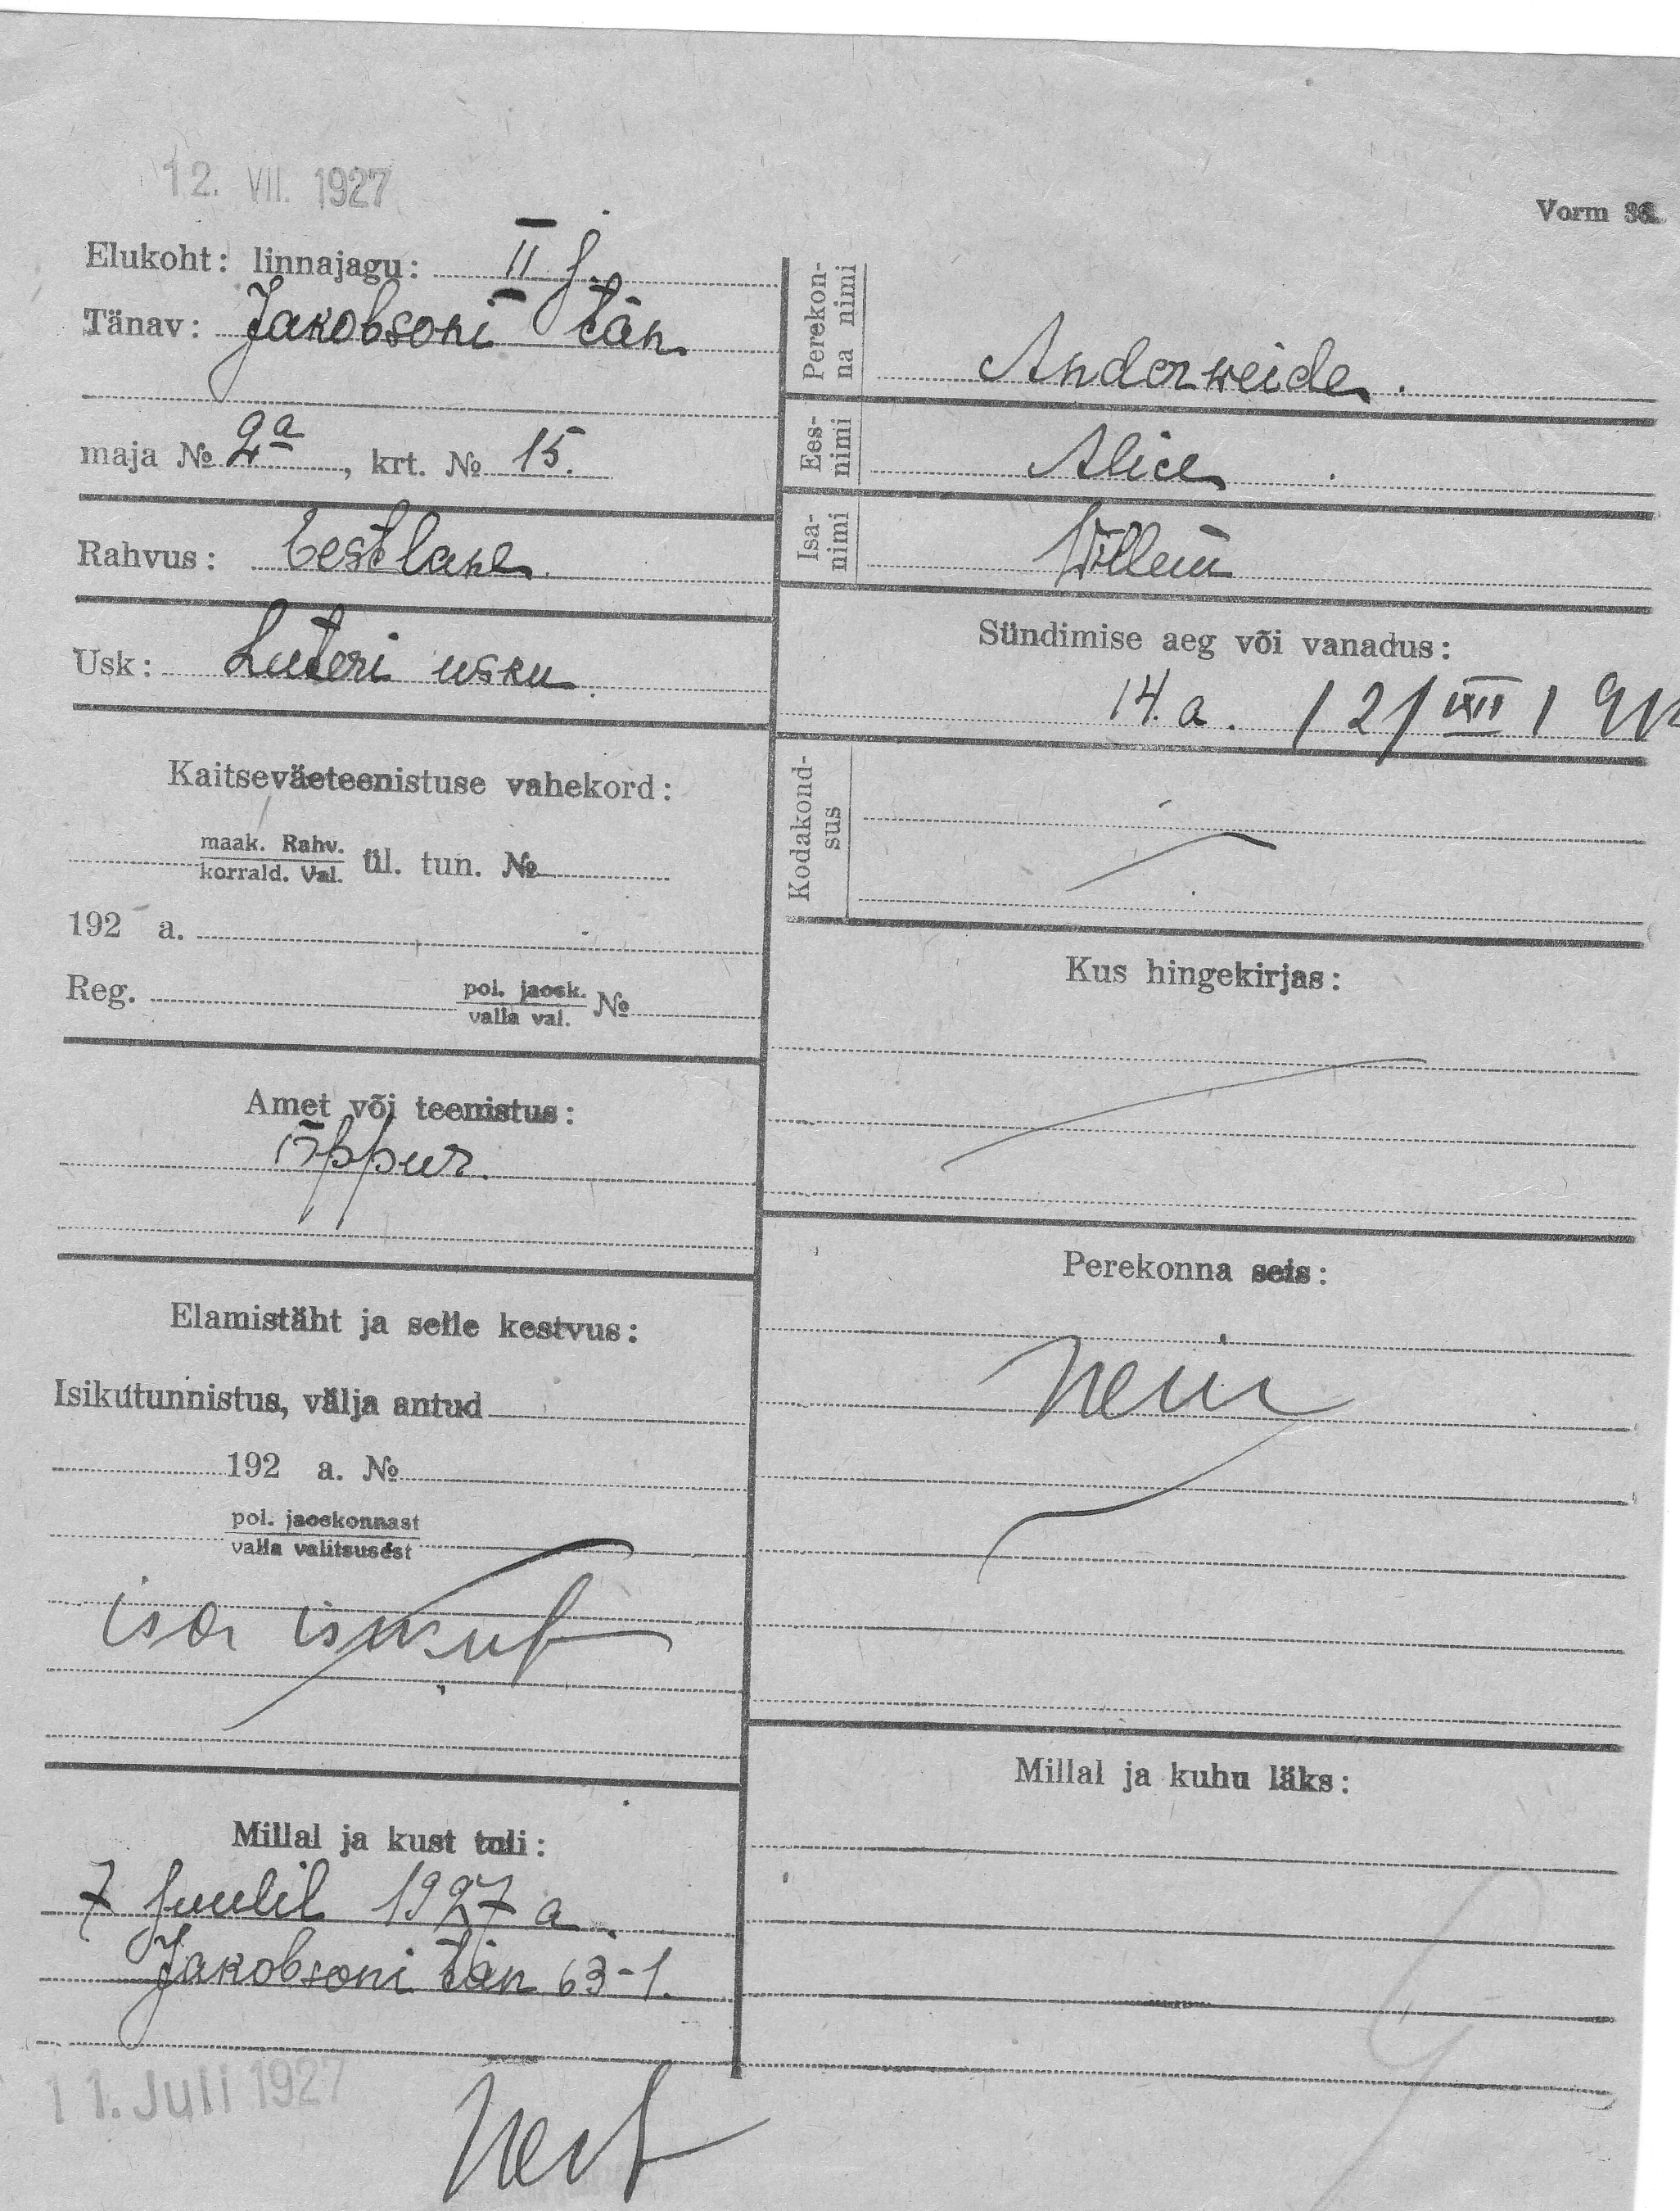 12. VII. 1927
Vorm 36.
Elukoht: linnajagu: II j.
Tänav: Jakobsoni tän
maja № 2a, krt. № 15.
Rahvus: Eestlane
Usk: Luteri usku
Kaitseväeteenistuse vahekord:
maak. Rahv.
korrald. Val. ül. tun. №
192 a.
Reg. pol. jaosk.
valla val. №
Amet või teenistus:
õppur.
Elamistäht ja selle kestvus:
Isikutunnistus, välja antud
192 a. №
pol. jaoskonnast
valla valitsusest
isa
Millal ja kust tuli:
7 Juulil 1927 a.
Jakobsoni tän 63-1.
11. Juli 1927
Perekon-
na nimi
Anderweide.
Ees-
nimi
Alice
Isa-
nimi
Willem
Sündimise aeg või vanadus:
14. a. /21/XII 191
Kodakond-
sus
Kus hingekirjas:
Perekonna seis:
Millal ja kuhu läks: